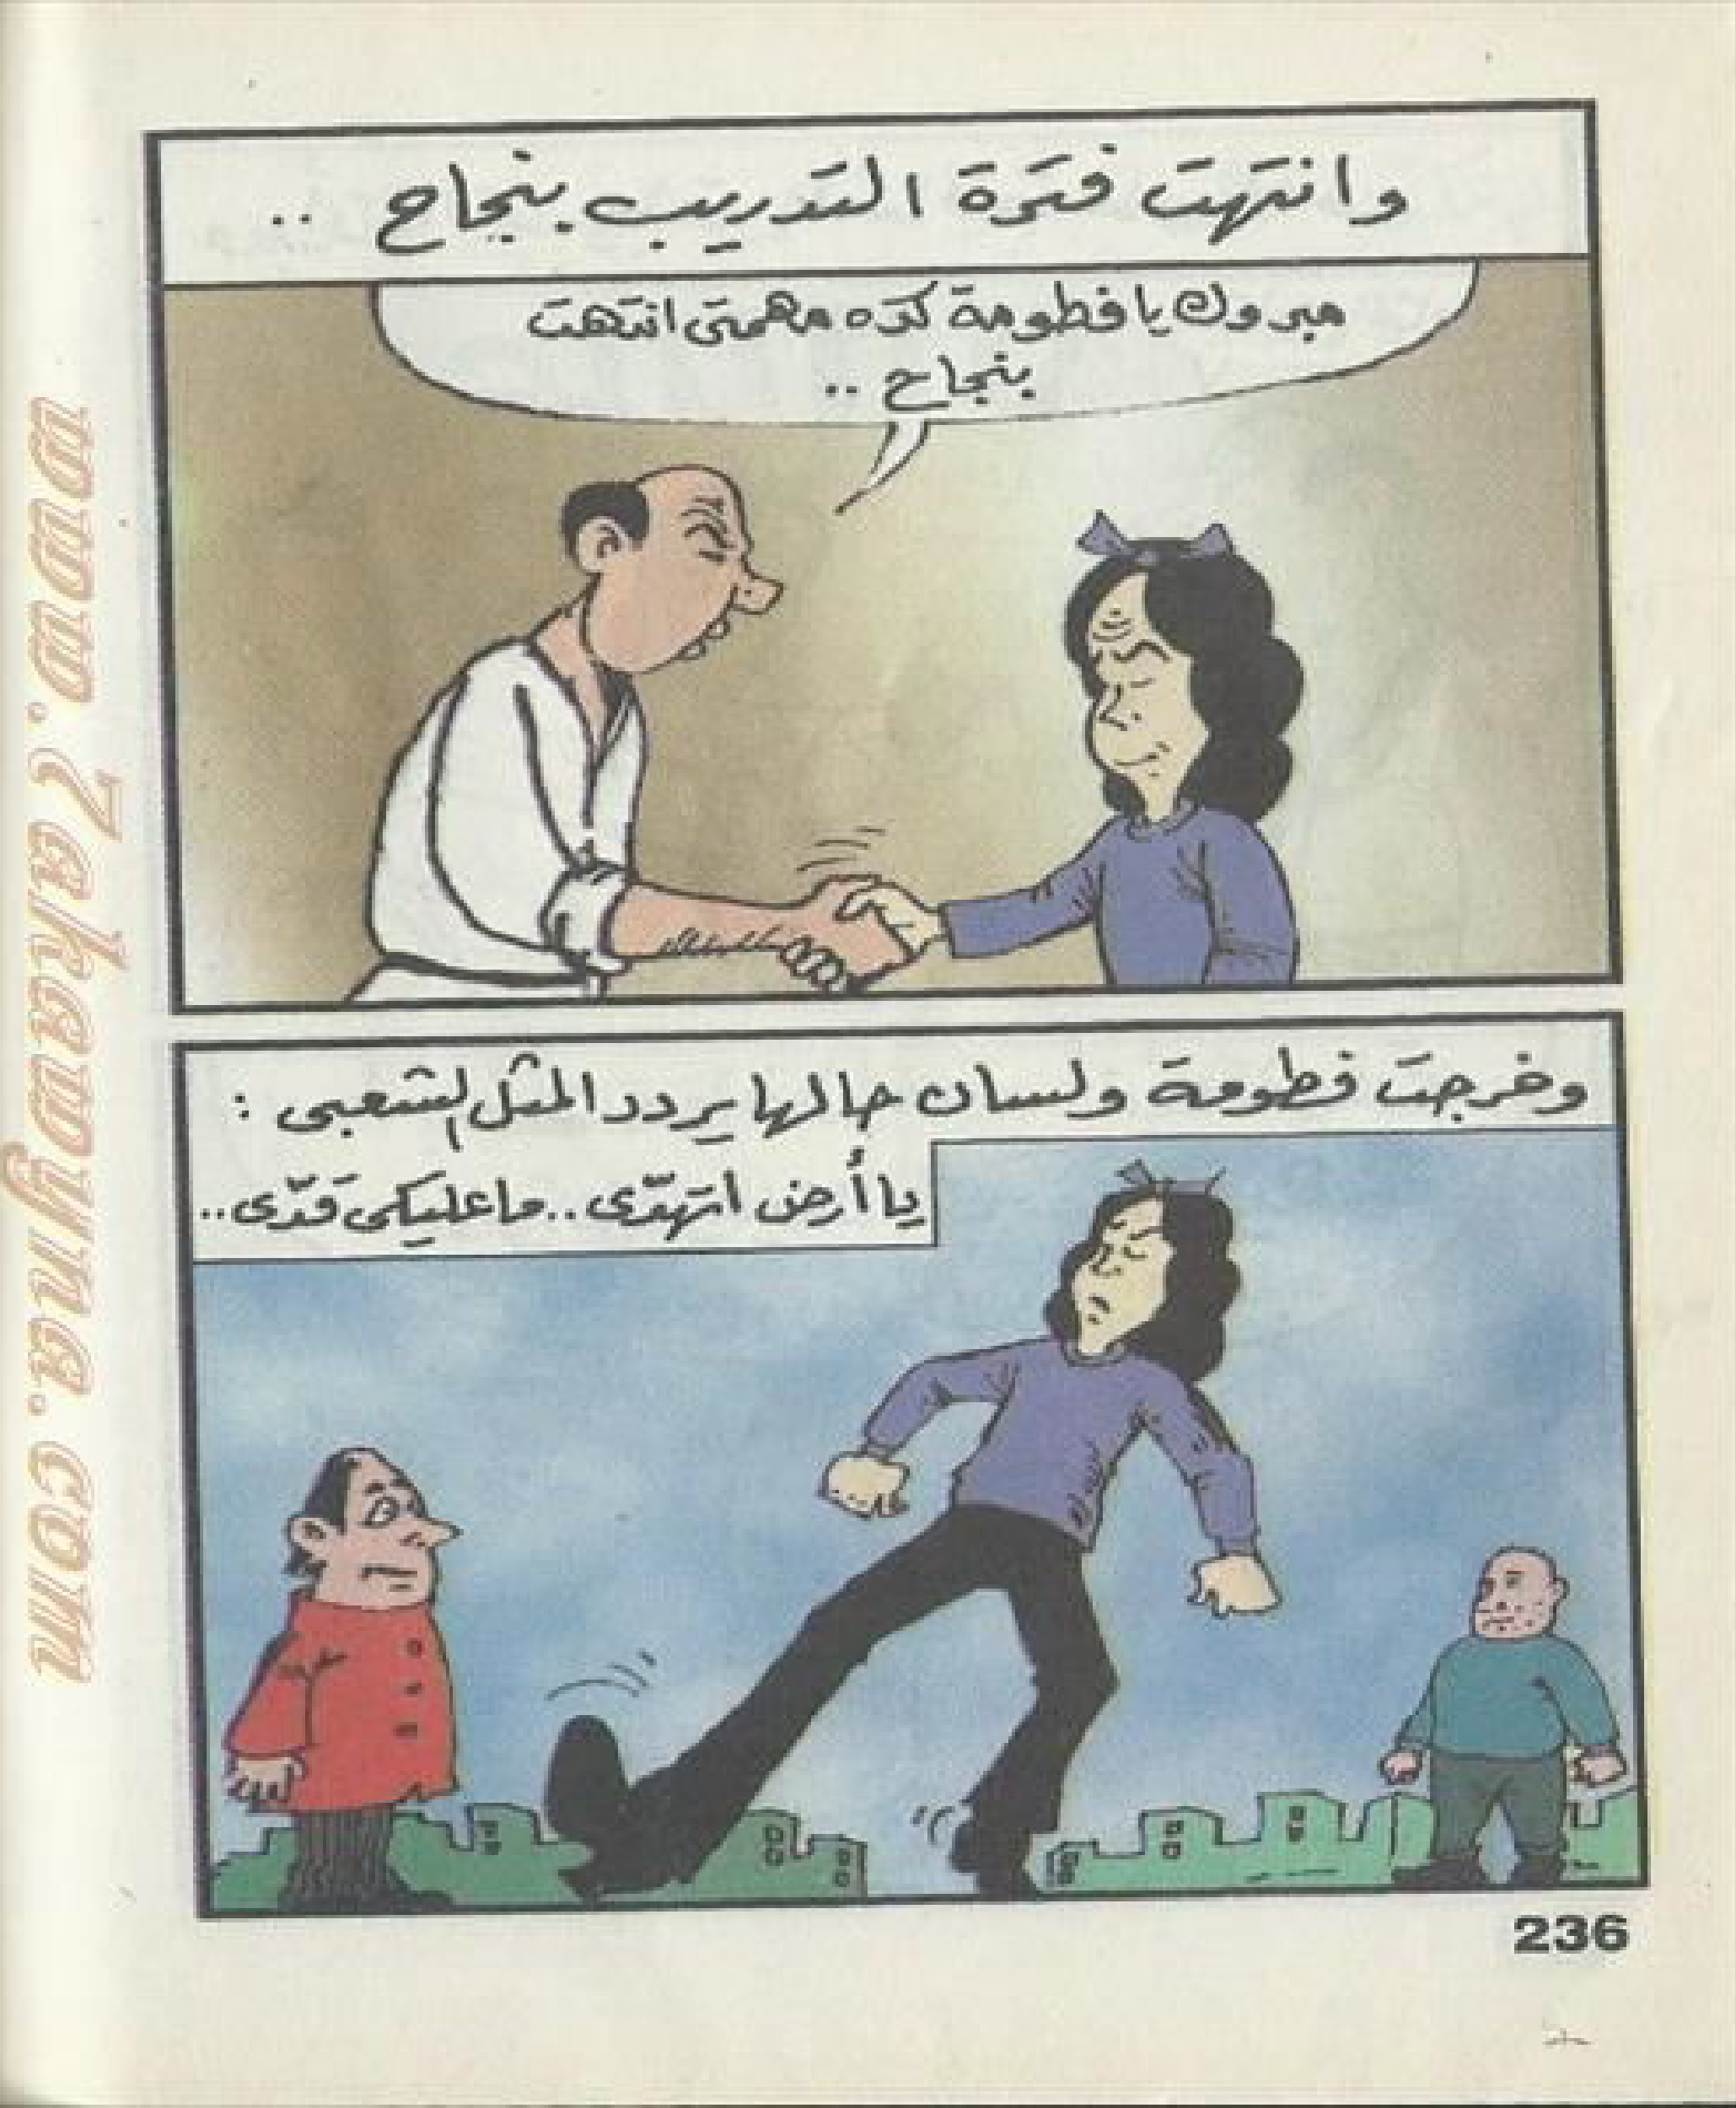 وانتهت فترة التدريب بنجاح ..
مبروك يا فطومة كده مهمتى انتهت
بنجاح ..
وخرجت فطومة ولسان حالها يردد المثل الشعبى :
يا أرض اتهدّى .. ما عليكى قدّى ..
236
www.7ekawyna.com